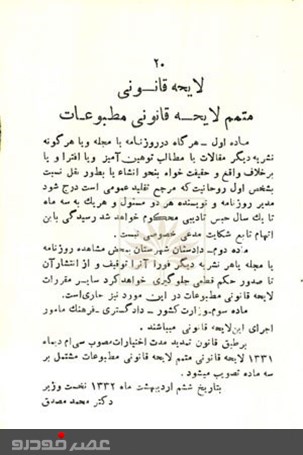 ۲۰
لایحه قانونی
متمم لایحه قانونی مطبوعات
ماده اول ـ هرگاه در روزنامه یا مجله ویا هرگونه
نشریه دیگر مقالات یا مطالب توهین آمیز ویا افترا و یا
برخلاف واقع و حقیقت خواه بنحو انشاء یا بطور نقل نسبت
بشخص اول روحانیت که مرجع تقلید عمومی است درج شود
مدیر روزنامه و نویسنده هر دو مسئول و هریك به سه ماه
تا یك سال حبس تادیبی محکوم خواهد شد رسیدگی باین
اتهام تابع شکایت مدعی خصوصی نیست .
ماده دوم ـ دادستان شهرستان بمحض مشاهده روزنامه
یا مجله یاهر نشریه دیگر فورا آنرا توقیف و از انتشار آن
تا صدور حکم قطعی جلوگیری خواهد کرد سایر مقررات
لایحه قانونی مطبوعات در این مورد نیز جاری است .
ماده سوم ـ وزارت کشور ـ دادگستری ـ فرهنك مامور
اجرای این لایحه قانونی میباشند .
برطبق قانون تمدید مدت اختیارات مصوب سی ام دیماه
۱۳۳۱ لایحه قانونی متمم لایحه قانونی مطبوعات مشتمل بر
سه ماده تصویب میشود .
بتاریخ ششم اردیبهشت ماه ۱۳۳۲ نخست وزیر
دکتر محمد مصدق
عصر خودرو